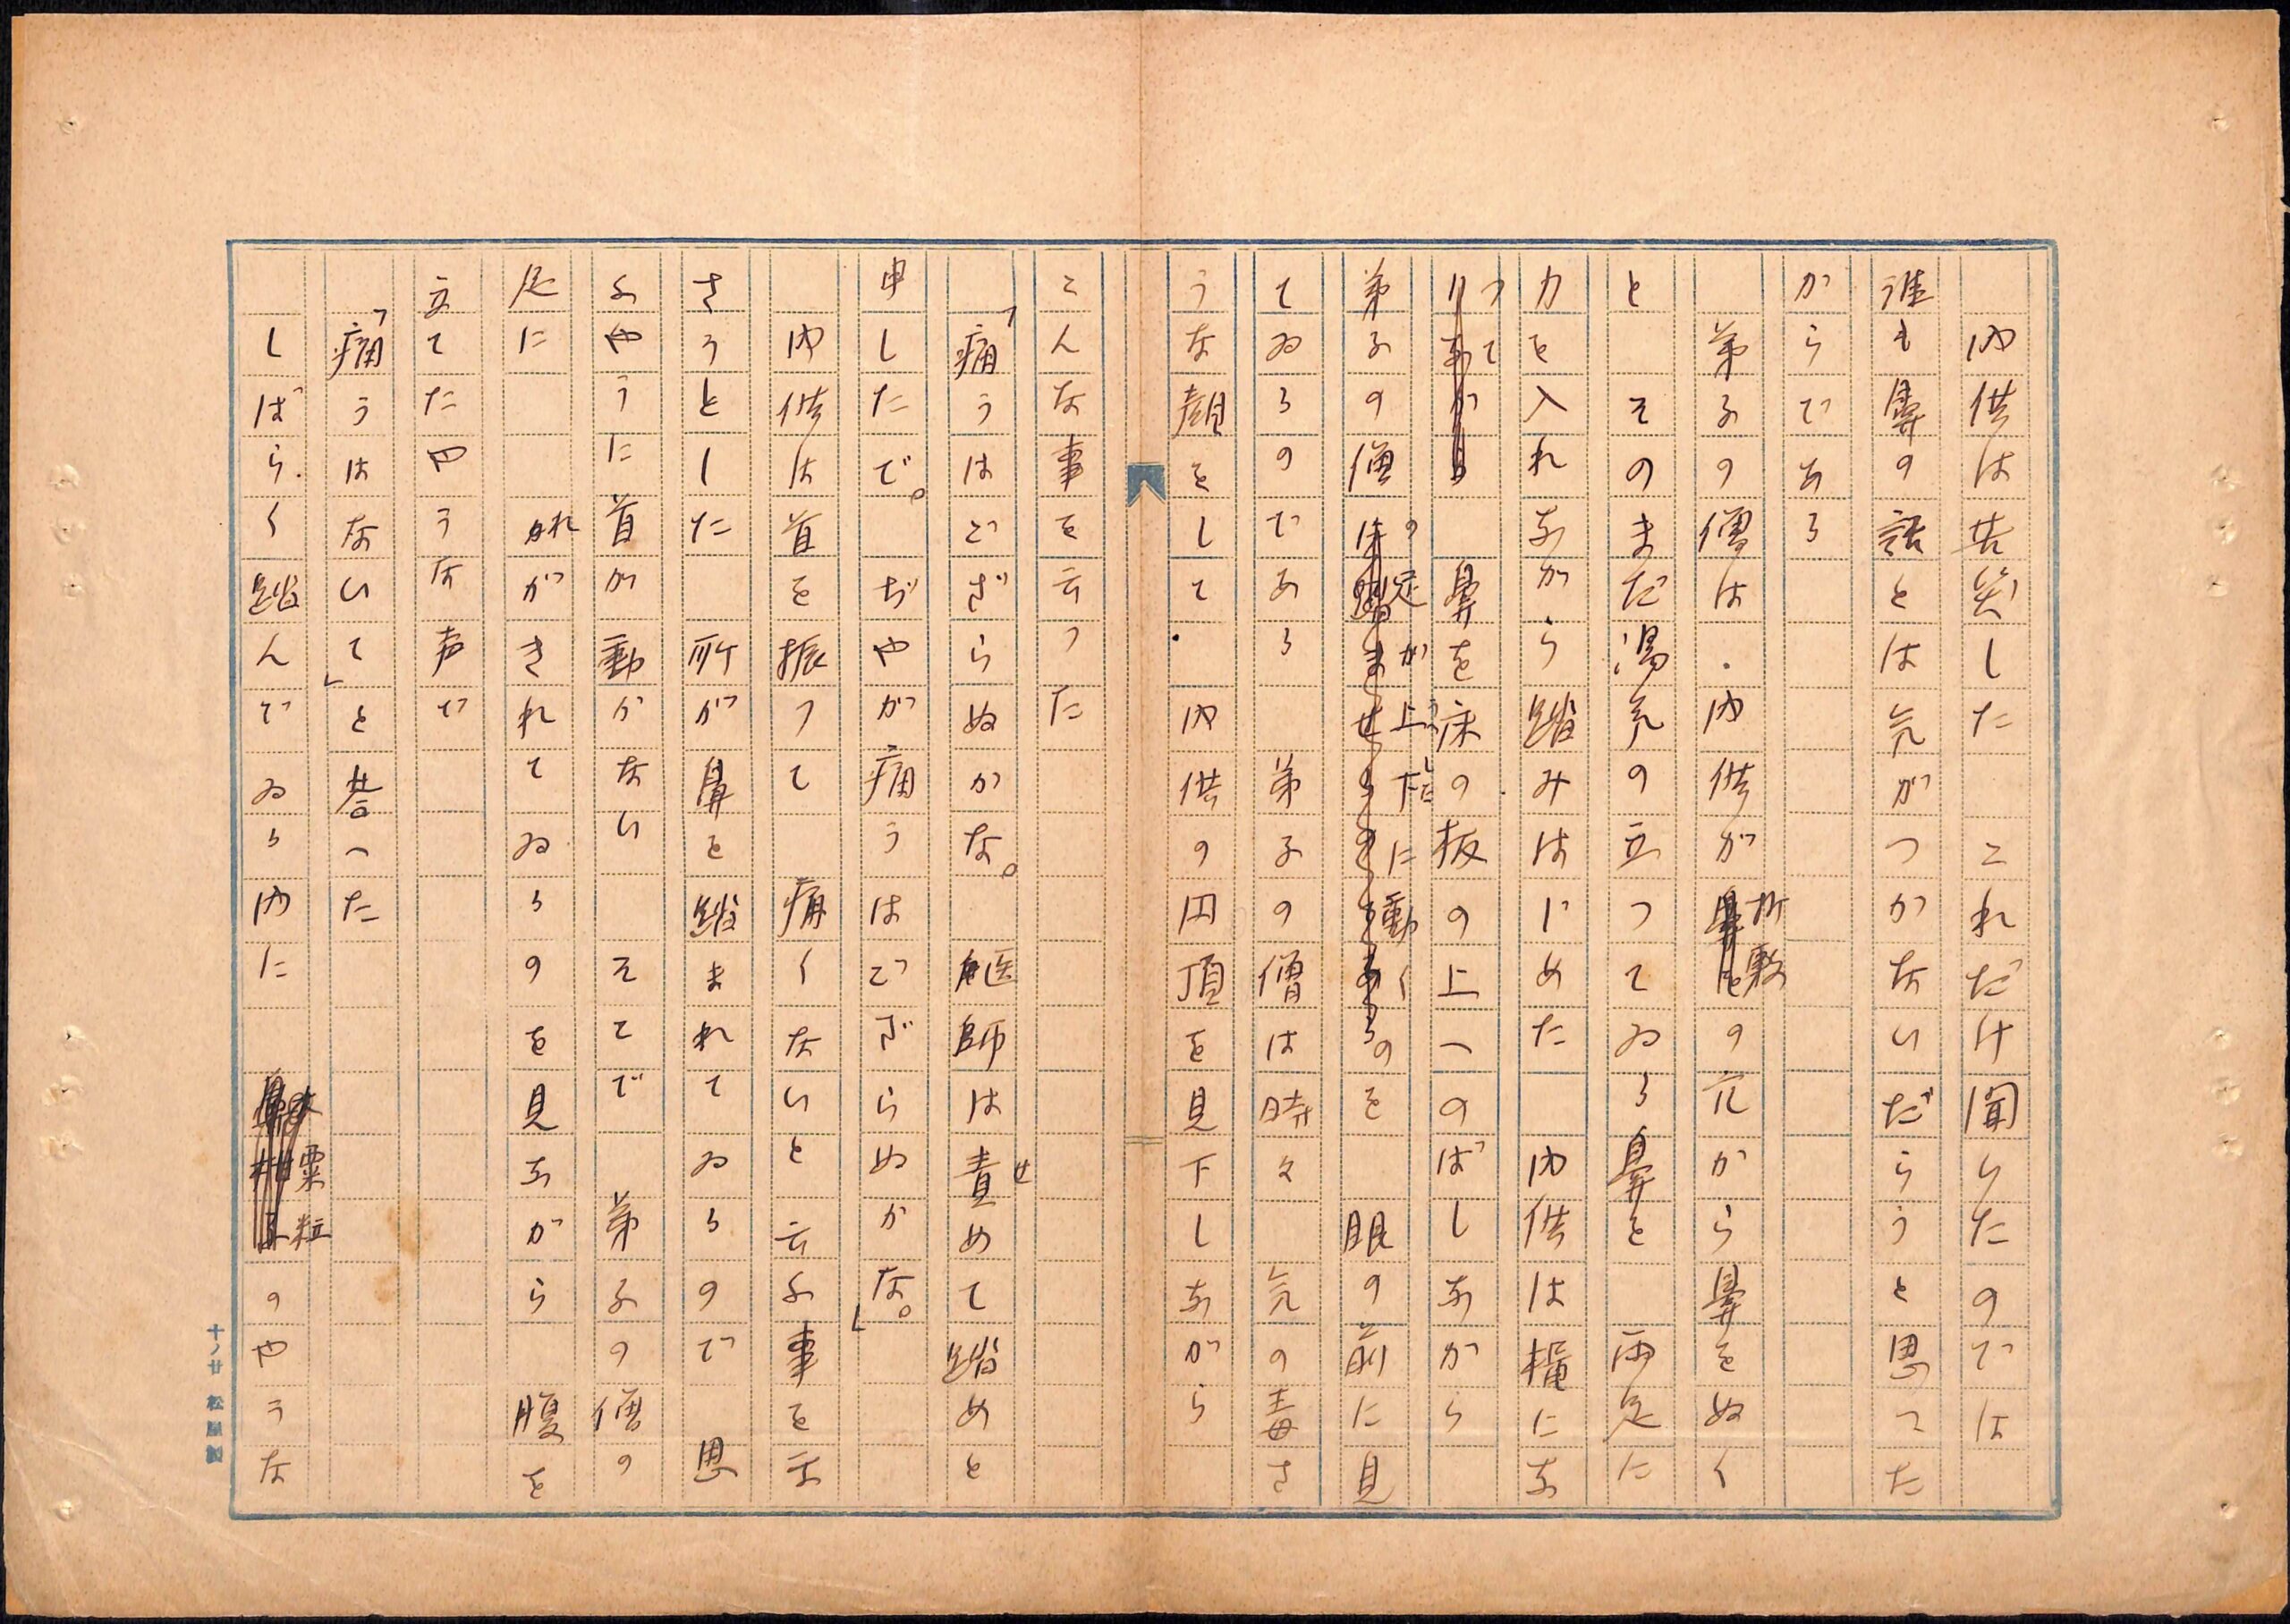 内供は苦笑した　これだけ聞いたのでは
誰も鼻の話とは気がつかないだらうと思つた
からである
弟子の僧は．内供が折敷の穴から鼻をぬく
と　そのまだ湯気の立つてゐる鼻を　両足に
力を入れながら踏みはじめた　内供は横にな
つて　鼻を床の板の上へのばしながら
弟子の僧の足が上下に動くのを　眼の前に見
てゐるのである　弟子の僧は時々　気の毒さ
うな顔をして．内供の円頂を見下しながら
こんな事を云つた
「痛うはござらぬかな。　医師は責めて踏めと
申したで。　ぢやが痛うはござらぬかな。」
内供は首を振つて　痛くないと云ふ事を示
さうとした　所が鼻を踏まれてゐるので　思
ふやうに首が動かない　そこで　弟子の僧の
足に　かれがきれてゐるのを見ながら　腹を
立てたやうな声で
「痛うはないて」と答へた
しばらく踏んでゐる内に　粟粒のやうな
十ノ廿　松屋製